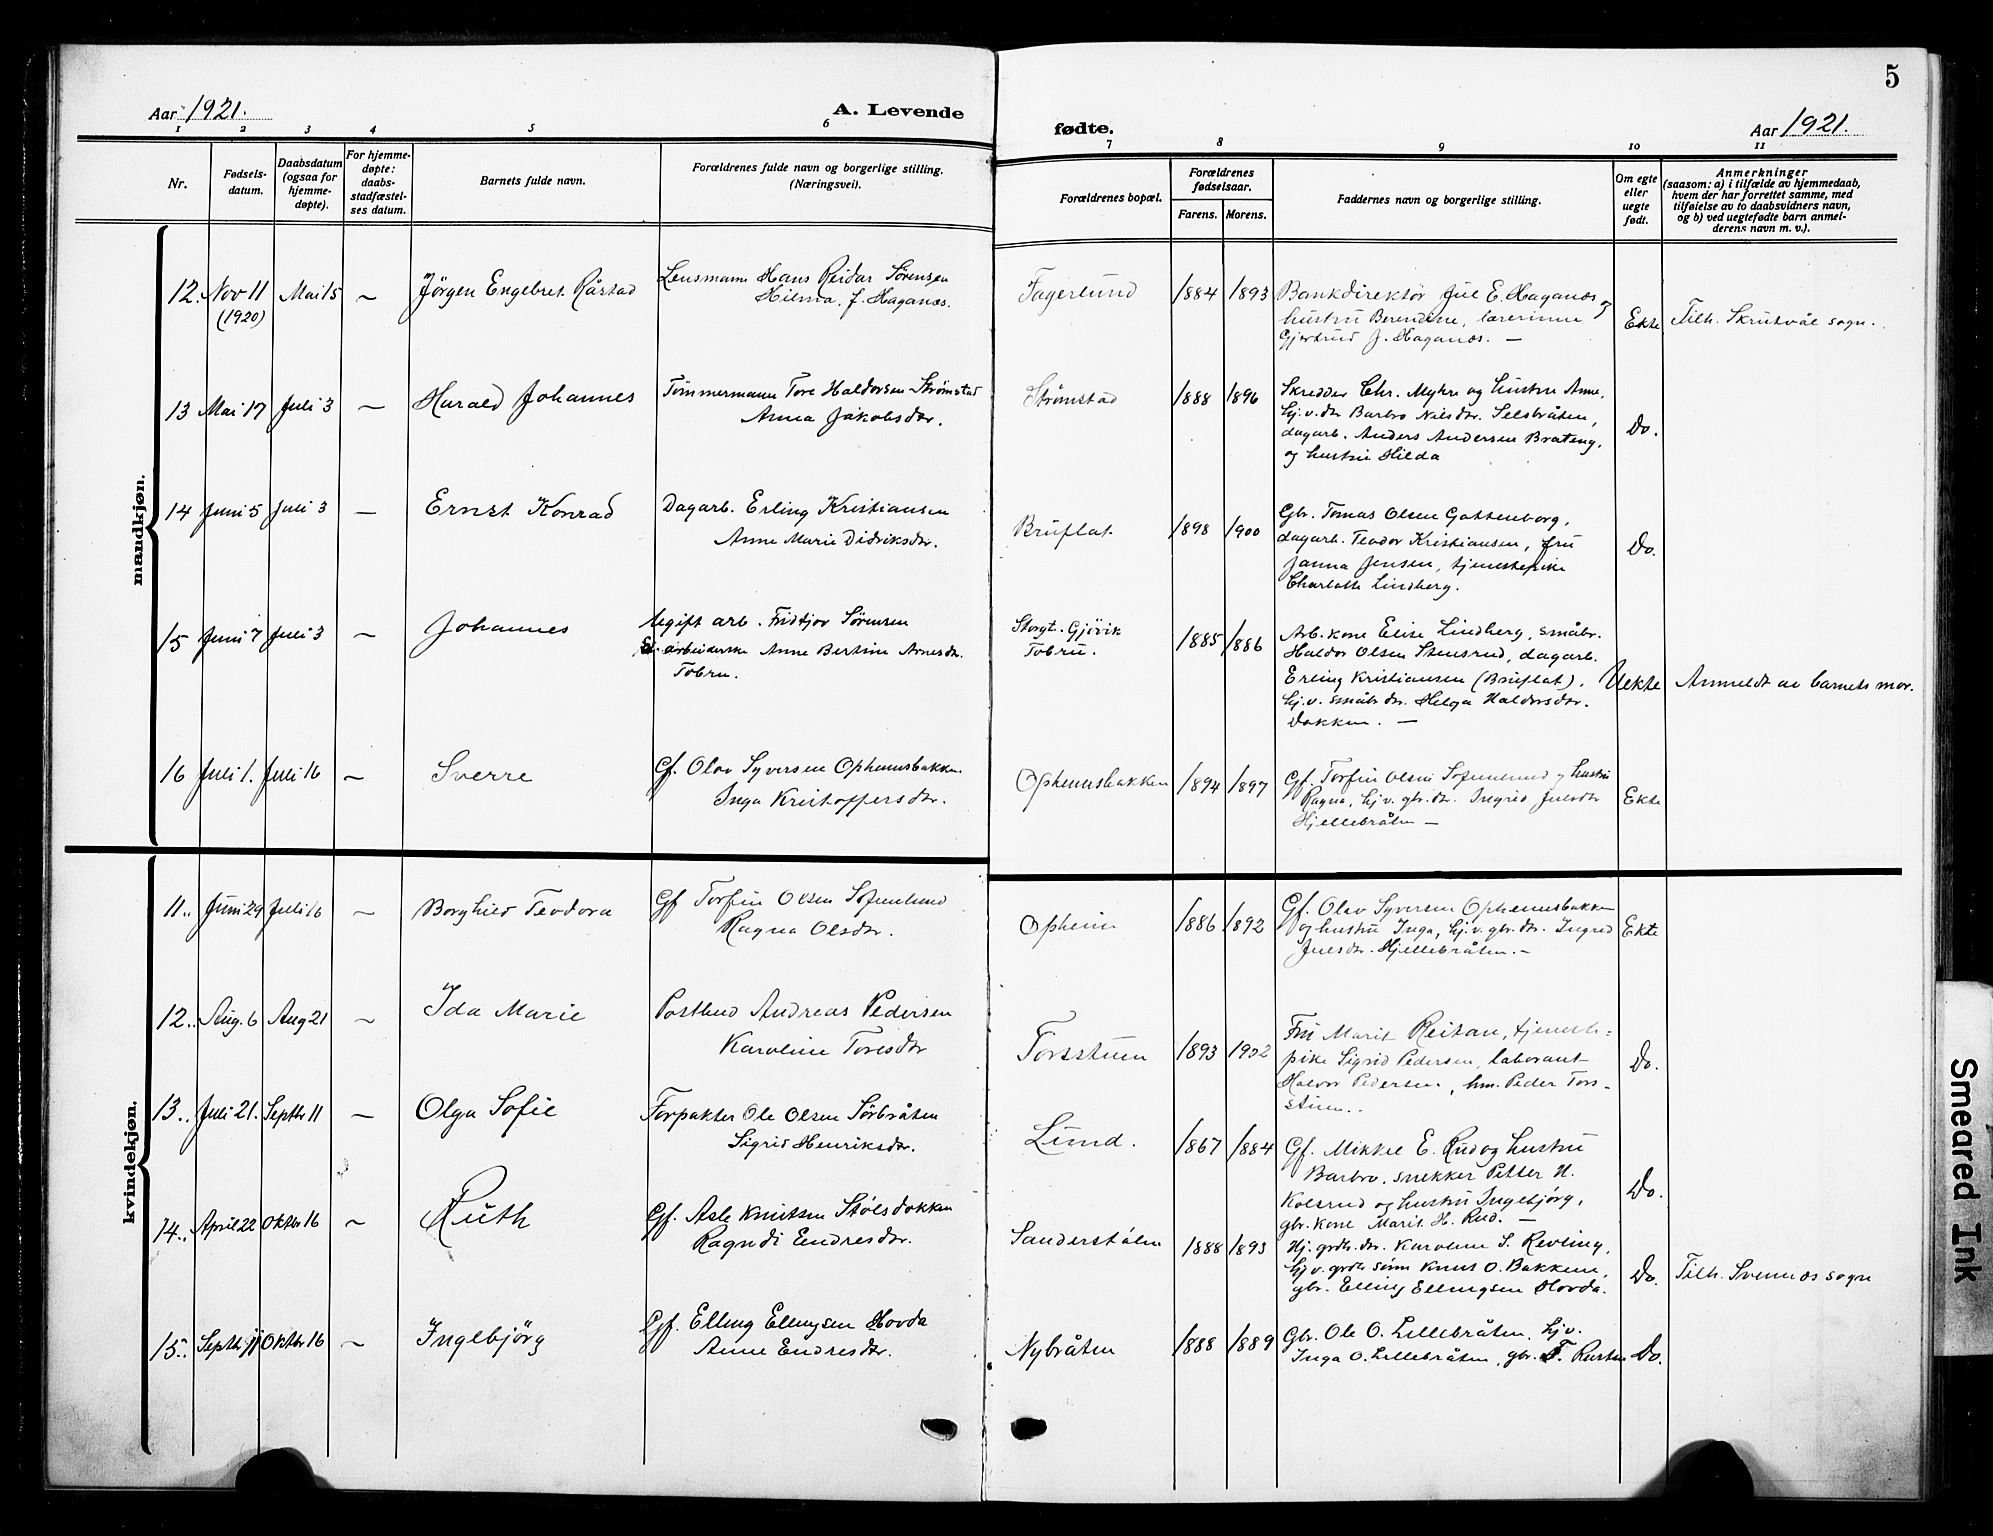 5
Aar 1921.
A. Levende
fødte.
Aar 1921.
1 2 3 4 5 6 7 8 9 10 11
Nr.
Fødsels-
datum.
Daabsdatum
(ogsaa for
hjemme-
døpte).
For hjemme-
døpte:
daabs-
stadfæstel-
ses datum.
Barnets fulde navn.
Forældrenes fulde navn og borgerlige stilling.
(Næringsvei).
Forældrenes bopæl.
Forældrenes
fødselsaar.
Farens. Morens.
Faddernes navn og borgerlige stilling.
Om egte
eller
uegte
født.
Anmerkninger
(saasom: a) i tilfælde av hjemmedaab,
hvem der har forrettet samme, med
tilføielse av to daabsvidners navn,
og b) ved uegtefødte barn anmel-
derens navn m. v.).
mandkjøn.
12. Nov 11 Mai 15 — Jørgen Engebret Råstad
(1920)
Lensmann Hans Reidar Sørensen
Hilma, f. Haganæs.
Fagerlund 1884 1893
Bankdirektør Jul E. Haganæs og
hustru Berendine, lærerinne
Gjertrud J. Haganæs. —
Ekte Tilh. Skrutvål sogn.
13 Mai 17 Juli 3 — Harald Johannes
Tømmermann Tore Haldorsen Strømstad
Anna Jakobsdtr.
Strømstad 1888 1896
Skredder Chr. Myhre og hustru Anne,
hj.v. dtr Barbro Nilsdtr. Selsbråten,
dagarb. Anders Andersen Brateng,
og hustru Hilda
Do.
14 Juni 5 Juli 3 — Ernst Konrad
Dagarb. Erling Kristiansen
Anne Marie Didriksdtr.
Bruflat. 1898 1900
Gbr. Tomas Olsen Gattenborg,
dagarb. Teodor Kristiansen, fru
Janna Jensen, tjenestepike
Charlotte Lindberg.
Do.
15 Juni 7 Juli 3 — Johannes
Ugift arb. Fridtjov Sørensen
arbeiderske Anne Bertine Arnesdtr.
Tobru.
Storgt. Gjøvik
Tobru.
1885 1886
Arb. kone Elise Lindberg, småbr.
Haldor Olsen Stensrud, dagarb.
Erling Kristiansen (Bruflat),
hj.v. småbr dtr. Helga Haldorsdtr.
Dokken. —
Uekte Anmeldt av barnets mor.
16 Juli 1. Juli 16 — Sverre
Gf. Olav Syversen Ophemsbakken.
Inga Kristoffersdtr.
Ophemsbakken 1894 1897
Gf. Torfin Olsen Sofienlund og hustru
Ragna, hj v. gbr. dtr. Ingrid Julsdtr
Hjellebråten —
Ekte
kvindekjøn.
11.. Juni 29 Juli 16 — Borghild Teodora
Gf Torfin Olsen Sofienlund
Ragna Olsdtr.
Opheim 1886 1892
Gf. Olav Syversen Ophemsbakken
og hustru Inga, hj.v. gbr. dtr. Ingrid
Julsdtr. Hjellebråten. —
Ekte
12.. Aug. 6 Aug 21 — Ida Marie
Postbud Andreas Pedersen
Karoline Toresdtr
Torsstuen 1893 1902
Fru Marit Reitan, tjeneste-
pike Sigrid Pedersen, laborant
Halvor Pedersen, hm. Peder Tors-
stuen..
Do.
13.. Juli 21. Septbr 11 — Olga Sofie
Forpakter Ole Olsen Sørbråten
Sigrid Henriksdtr.
Lund. 1867 1884
Gf. Mikkel E. Rud og hustru
Barbro, snekker Petter H.
Kolsrud og hustru Ingebjørg,
gbr. kone Marit H. Rud. —
Do.
14.. April 22 Oktbr 16 — Ruth
Gf. Asle Knutsen Stølsdokken
Ragndi Endresdtr.
Sanderstølen 1888 1893
Hj. grdbr. dtr. Karoline S. Revling,
hj v. grdbr sønn Knut O. Bakkene,
gbr. Elling Ellingsen Hovda.
Do. Tilh. Svennæs sogn
15.. Septbr 11 Oktbr 16 — Ingebjørg
Gf. Elling Ellingsen Hovda
Anne Endresdtr.
Nybråten 1888 1889
Gbr. Ole O. Lillebråten, hj v.
Inga O. Lillebråten, gbr. T. Rusten
Do.
Smeared Ink